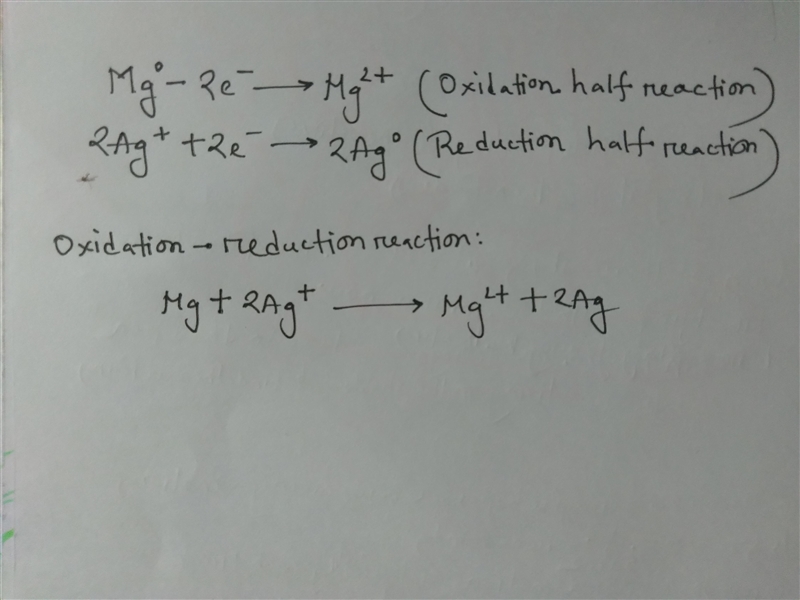 Mg⁰ − 2e⁻ ⟶ Mg²⁺ (Oxidation half reaction)
2Ag⁺ + 2e⁻ ⟶ 2Ag⁰ (Reduction half reaction)
Oxidation - reduction reaction:
Mg + 2Ag⁺ ⟶ Mg²⁺ + 2Ag